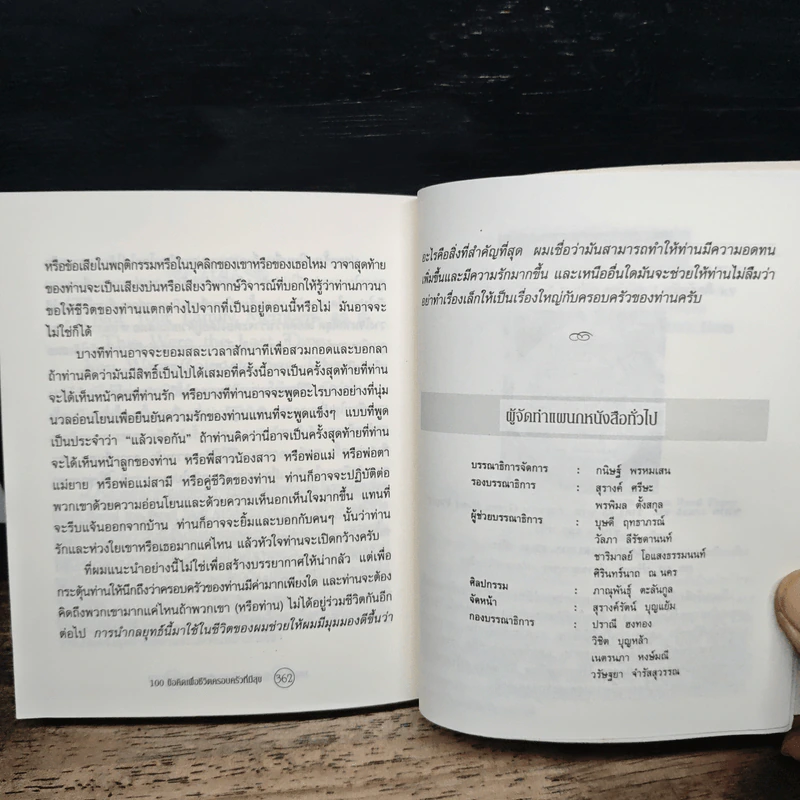 หรือข้อเสียในพฤติกรรมหรือในบุคลิกของเขาหรือของเธอไหม วาจาสุดท้าย
ของท่านจะเป็นเสียงบ่นหรือเสียงวิพากษ์วิจารณ์ที่บอกให้รู้ว่าท่านภาวนา
ขอให้ชีวิตของท่านแตกต่างไปจากที่เป็นอยู่ตอนนี้หรือไม่ มันอาจจะ
ไม่ใช่ก็ได้
บางทีท่านอาจจะยอมสละเวลาสักนาทีเพื่อสวมกอดและบอกลา
ถ้าท่านคิดว่ามันมีสิทธิ์เป็นไปได้เสมอที่ครั้งนี้อาจเป็นครั้งสุดท้ายที่ท่าน
จะได้เห็นหน้าคนที่ท่านรัก หรือบางทีท่านอาจจะพูดอะไรบางอย่างที่นุ่ม
นวลอ่อนโยนเพื่อยืนยันความรักของท่านแทนที่จะพูดแข็งๆ แบบที่พูด
เป็นประจำว่า "แล้วเจอกัน" ถ้าท่านคิดว่านี่อาจเป็นครั้งสุดท้ายที่ท่าน
จะได้เห็นหน้าลูกของท่าน หรือพี่สาวน้องสาว หรือพ่อแม่ หรือพ่อตา
แม่ยาย หรือพ่อแม่สามี หรือคู่ชีวิตของท่าน ท่านก็อาจจะปฏิบัติต่อ
พวกเขาด้วยความอ่อนโยนและด้วยความเห็นอกเห็นใจมากขึ้น แทนที่
จะรีบแจ้นออกจากบ้าน ท่านก็อาจจะยิ้มและบอกกับคนๆ นั้นว่าท่าน
รักและห่วงใยเขาหรือเธอมากแค่ไหน แล้วหัวใจท่านจะเปิดกว้างครับ
ที่ผมแนะนำอย่างนี้ไม่ใช่เพื่อสร้างบรรยากาศให้น่ากลัว แต่เพื่อ
กระตุ้นท่านให้นึกถึงว่าครอบครัวของท่านมีค่ามากเพียงใด และท่านจะต้อง
คิดถึงพวกเขามากแค่ไหนถ้าพวกเขา (หรือท่าน) ไม่ได้อยู่ร่วมชีวิตกันอีก
ต่อไป การนำกลยุทธ์นี้มาใช้ในชีวิตของผมช่วยให้ผมมีมุมมองดีขึ้นว่า
100 ข้อคิดเพื่อชีวิตครอบครัวที่มีสุข 362
อะไรคือสิ่งที่สำคัญที่สุด ผมเชื่อว่ามันสามารถทำให้ท่านมีความอดทน
เพิ่มขึ้นและมีความรักมากขึ้น และเหนืออื่นใดมันจะช่วยให้ท่านไม่ลืมว่า
อย่าทำเรื่องเล็กให้เป็นเรื่องใหญ่กับครอบครัวของท่านครับ
ผู้จัดทำแผนกหนังสือทั่วไป
บรรณาธิการจัดการ : กนิษฐ์ พรหมเสน
รองบรรณาธิการ : สุรางค์ ศรีษะ
พรพิมล ตั้งสกุล
ผู้ช่วยบรรณาธิการ : บุษดี ฤทธาภรณ์
วัลภา ลีรัชตานนท์
ชาริมาลย์ โอแสงธรรมนนท์
ศิรินทร์นาถ ณ นคร
ศิลปกรรม : ภาณุพันธุ์ ตะลันกูล
จัดหน้า : สุรางค์รัตน์ บุญแย้ม
กองบรรณาธิการ : ปราณี ฮงทอง
วิชิต บุญหล้า
เนตรนภา หงษ์มณี
วรัษฐยา จำรัสสุวรรณ